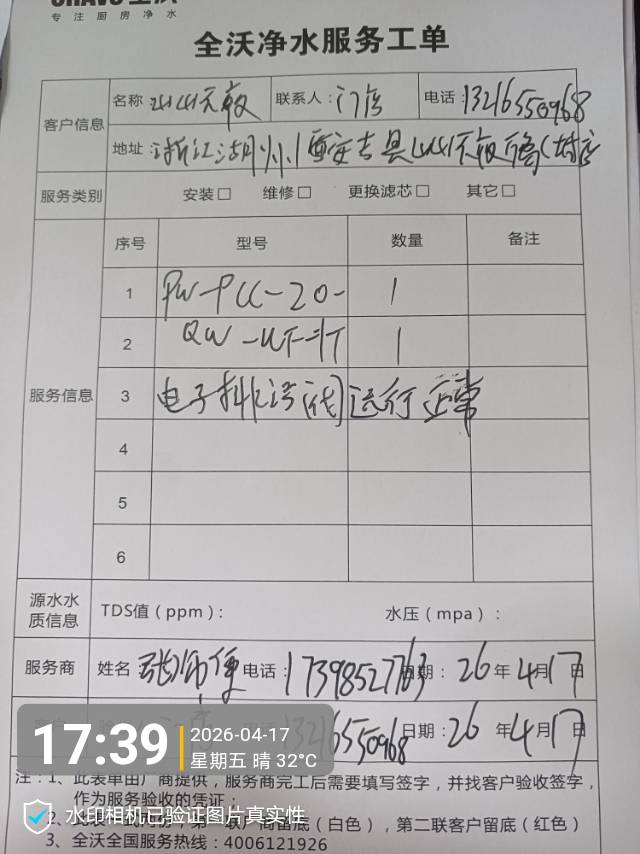 专注厨房净水
全沃净水服务工单
客户信息
名称 山山天敲 联系人：门店 电话：13216550968
地址：浙江湖州 安吉县山山天敲
服务类别 安装□ 维修□ 更换滤芯□ 其它□
服务信息
序号 型号 数量 备注
1 PW-PCC-20- 1
2 QW-UF-1T 1
3 电子排污阀 运行正常
4
5
6
源水水质信息 TDS值（ppm）： 水压（mpa）：
服务商 姓名 张师傅 电话：17398527763 日期：26年4月17日
13216550968 日期：26年4月17日
17:39 2026-04-17
星期五 晴 32°C
注：1、此表单由厂商提供，服务商完工后需要填写签字，并找客户验收签字，
作为服务验收的凭证；
水印相机已验证图片真实性
2、 第一联厂商留底（白色），第二联客户留底（红色）
3、全沃全国服务热线：4006121926